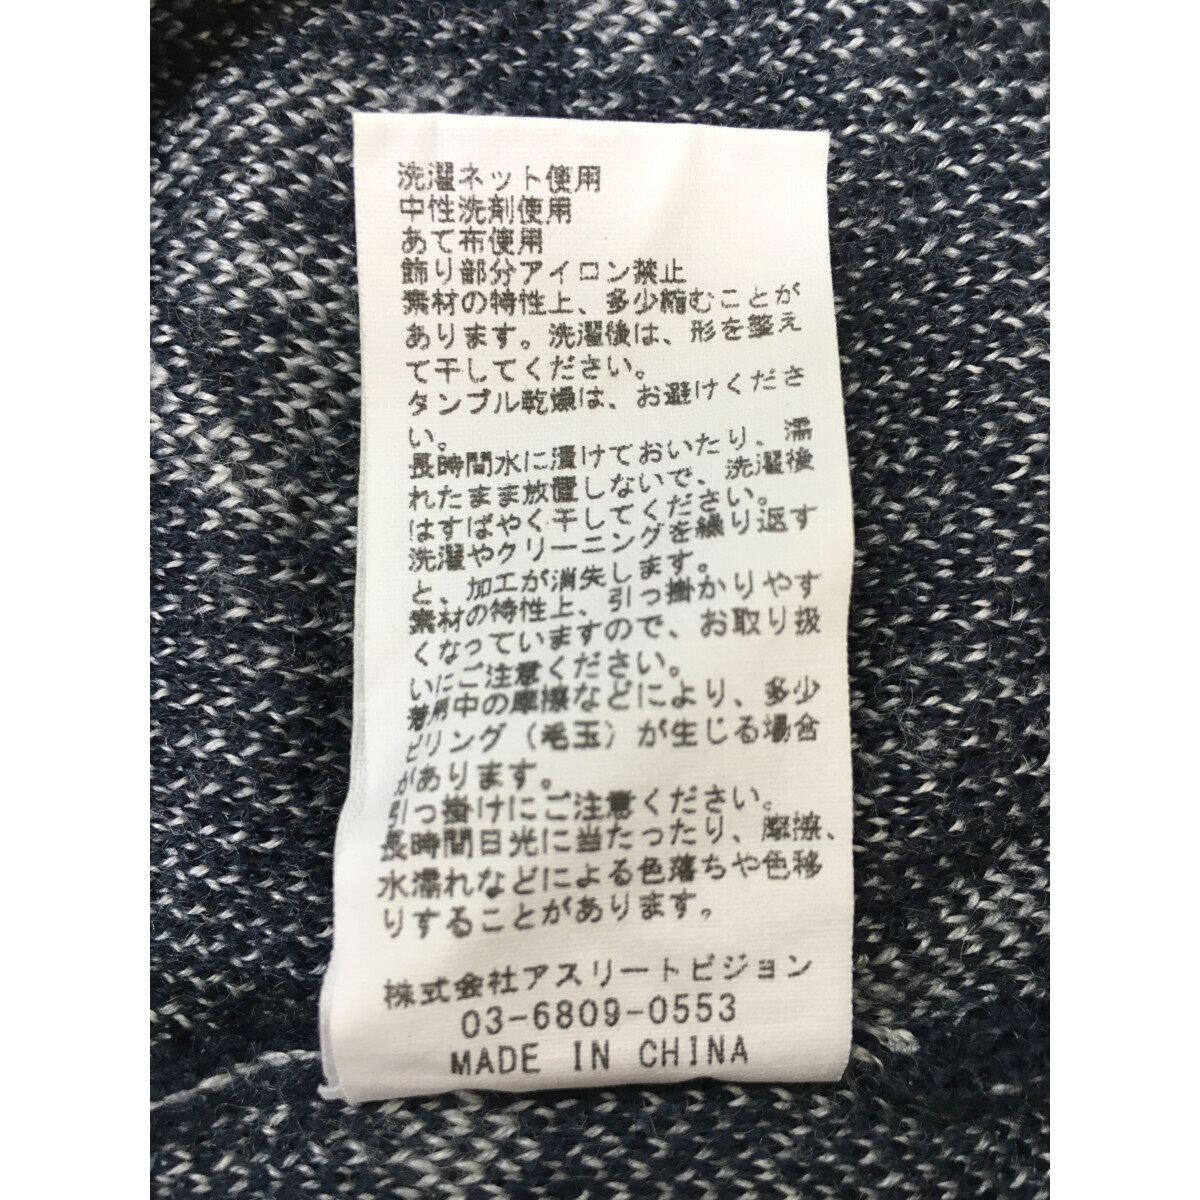 洗濯ネット使用
中性洗剤使用
あて布使用
飾り部分アイロン禁止
素材の特性上、多少縮むことが
あります。洗濯後は、形を整え
て干してください。
タンブル乾燥は、お避けくださ
い。
長時間水に漬けておいたり、濡
れたまま放置しないで、洗濯後
はすばやく干してください。
洗濯やクリーニングを繰り返す
と、加工が消失します。
素材の特性上、引っ掛かりやす
くなっていますので、お取り扱
いにご注意ください。
着用中の摩擦などにより、多少
ピリング（毛玉）が生じる場合
があります。
引っ掛けにご注意ください。
長時間日光に当たったり、摩擦、
水濡れなどによる色落ちや色移
りすることがあります。
株式会社アスリートビジョン
03-6809-0553
MADE IN CHINA